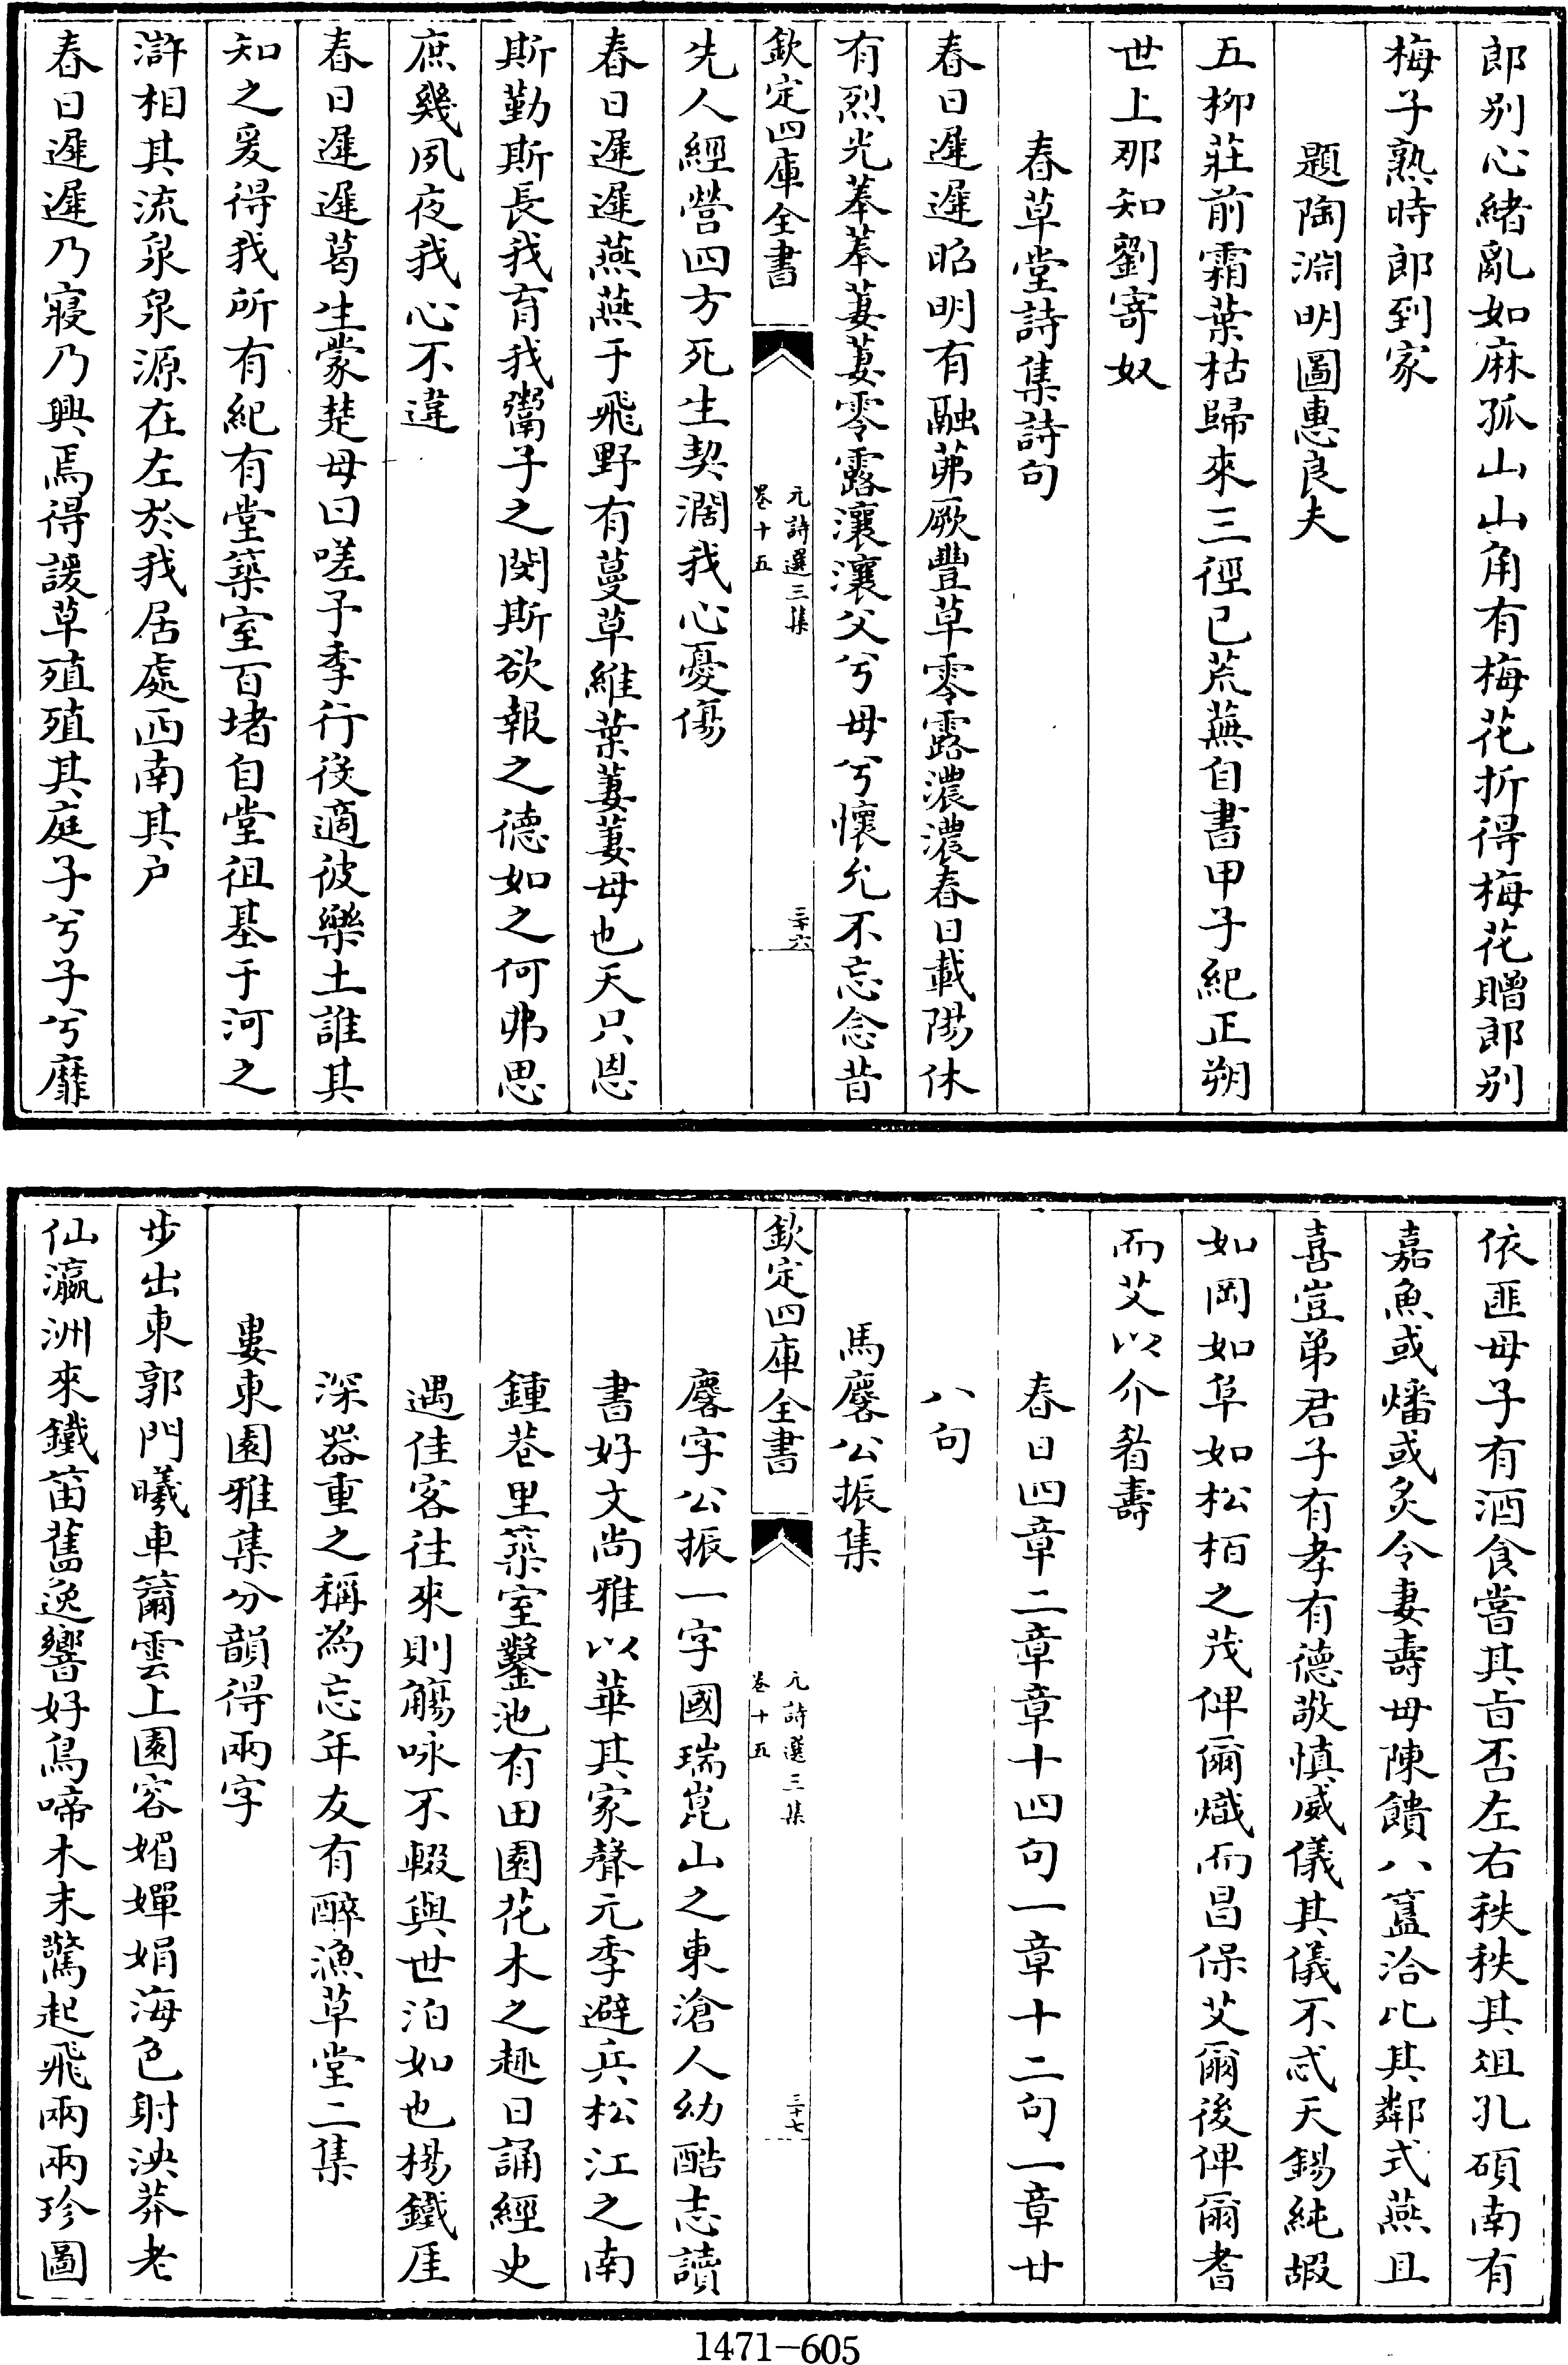 郎别心緒亂如麻孤山山角有梅花折得梅花贈郎别
梅子熟時郎到家
題陶淵明圖惠良夫
五栁莊前霜葉枯歸來三徑已荒蕪自書甲子紀正朔
世上那知劉寄奴
春草堂詩集詩句
春日遲遲昭明有融茀厥豐草零露濃濃春日載陽休
有烈光菶菶萋萋零露瀼瀼父兮母兮懷允不忘念昔
欽定四庫全書
元詩選三集
卷十五
三十六
先人經營四方死生契濶我心憂傷
春日遲遲燕燕于飛野有蔓草維葉萋萋母也天只恩
斯勤斯長我育我鬻子之閔斯欲報之德如之何弗思
庶幾夙夜我心不違
春日遲遲葛生蒙楚母曰嗟予季行役適彼樂土誰其
知之爰得我所有紀有堂築室百堵自堂徂基于河之
滸相其流泉泉源在左於我居處西南其户
春日遲遲乃寢乃興焉得諼草殖殖其庭子兮子兮靡
依匪母子有酒食嘗其㫖否左右秩秩其俎孔碩南有
嘉魚或燔或炙令妻壽母陳饋八簋洽比其鄰式燕且
喜豈弟君子有孝有德敬慎威儀其儀不忒天錫純嘏
如岡如阜如松栢之茂俾爾熾而昌保艾爾後俾爾耆
而艾以介眉壽
春日四章二章章十四句一章十二句一章廿
八句
馬麐公振集
欽定四庫全書
元詩選三集
卷十五
三十七
麐字公振一字國瑞崑山之東滄人幼酷志讀
書好文尚雅以華其家聲元季避兵松江之南
鍾巷里築室鑿池有田園花木之趣日誦經史
遇佳客往來則觴咏不輟與世泊如也楊鐵厓
深器重之稱為忘年友有醉漁草堂二集
婁東園雅集分韻得兩字
步出東郭門曦車籋雲上園容媚嬋娟海色射泱莽老
仙瀛洲來鐵笛舊逸響好鳥啼木末驚起飛兩兩珍圖
1471-605